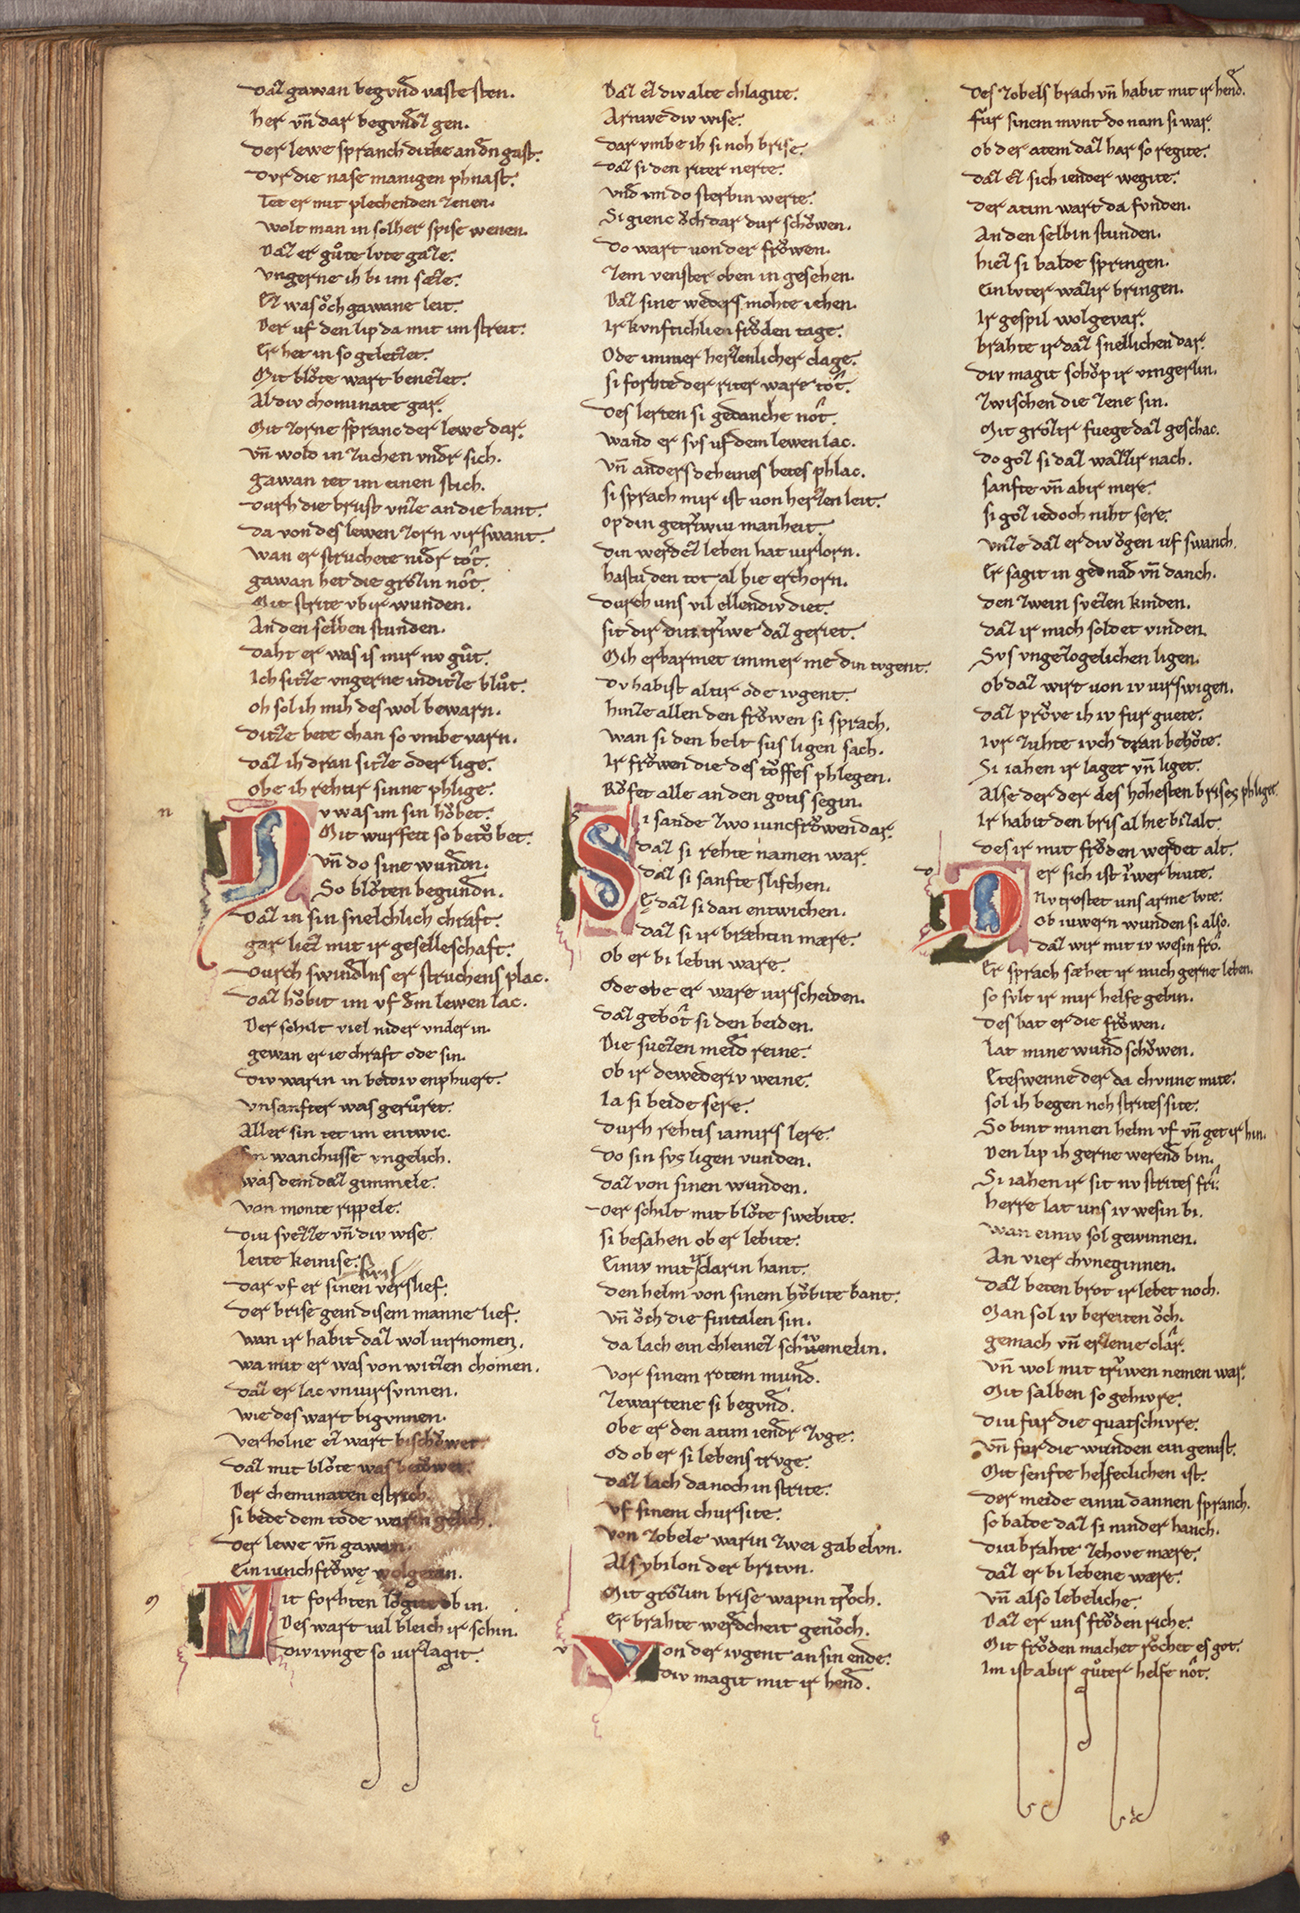 Daz gawan begvnd vaste sten.
her vn̄ dar begvndz gen.
Der lewe spranch dicke an dn gast.
Dvr die nase manigen phnast.
Tet er mit plechenden zenen.
wolt man in solher spise wenen.
Daz er gůte lvte gaze.
vngerne ih bi im sæze.
Ez was ǒch gawane leit.
Der uf den lip da mit im streit.
Er het in so geletzet.
Mit blůte wart benetzet.
Al div chominate gar.
Mit zorne spranc der lewe dar.
vn̄ wold in zuchen vndr sich.
gawan tet im einen stich.
Durh die brust vnze an die hant.
da von des lewen zorn virswant.
wan er struchete nidr tot.
gawan het die grozin not.
Mit strite vbir wunden.
An den selben stunden.
Daht er was is mir nv gůt.
Ich sitze vngerne in ditze blůt.
Oh sol ih mih des wol bewarn.
Ditze bete chan so vmbe varn.
Daz ih dran sitze oder lige.
Obe ih rehtir sinne phlige.
Nv was im sin hǒbet.
Mit wurfen so betǒbet.
vn̄ do sine wundn.
So blůten begundn.
Daz in sin snelchlich chraft.
gar liez mit ir geselleschaft.
Durch swindlns er struchens plac.
Daz hǒbit im vf dm lewen lac.
Der schilt viel nider vnder in.
gewan er ie chraft ode sin.
Div warin in betoiv enphuert.
vnsanfter was gerůret.
Aller sin tet im entwic.
Sin wanchusse vngelich.
was dem daz gimmele.
von monte rippele.
Div svezze vn̄ div wise.
leite keinise.
Dar vf er sinen pris verslief.
Der brise gein disem manne lief.
wan ir habit daz wol virnomen.
wa mit er was von witzen chomen.
Daz er lac vnvirsvnnen.
wie des wart bigvnnen.
Verholne ez wart bischǒwet.
Daz mit blůte was betǒwet.
Der cheminaten estrich.
Si bede dem tode warin gelich.
Der lewe vn̄ gawan.
Ein iunchfrǒwe wolgetan.
Mit forhten lǒgite ob in.
Des wart vil bleich ir schin.
Div ivnge so virzagit.
Daz ez div alte chlagite.
Arniwe div wise.
Dar vmbe ih si noh brise.
Daz si den riter nerte.
vnd im do sterbin werte.
Si gienc ǒch dar dur schǒwen.
Do wart von der frǒwen.
zem venster oben in gesehen.
Daz sine weders mohte iehen.
Ir kvnftichlien frǒden tage.
Ode immer herzenlicher clage.
si forhte der riter ware tot.
Des lerten si gedanche not.
wand er svs uf dem lewen lac.
vn̄ anders decheines betes phlac.
si sprach mir ist von herzen leit.
op din getrwiu manheit.
Din werdez leben hat virlorn.
hastu den tot al hie erchorn.
Durch uns vil ellendiv diet.
sit dir din trwe daz geriet.
Mih erbarmet immer me din tvgent.
Dv habist altir ode ivgent.
hinze allen den frǒwen si sprach.
wan si den helt sus ligen sach.
Ir frǒwen die des tǒffes phlegen.
Růfet alle an den gotis segin.
Si sande zwo iuncfrǒwen dar.
daz si rehte namen war.
daz si sanfte slifchen.
E daz si dan entwichen.
daz si ir bræhtin mære.
Ob er bi lebin ware.
Ode obe er ware virscheiden.
Daz gebot si den beiden.
Die suezen meid reine.
Ob ir dewederiv weine.
Ia si beide sere.
Durh rehtis iamirs lere.
Do sin svs ligen vunden.
Daz von sinen wunden.
Der schilt mit blůte swebite.
si besahen ob er lebite.
Einiv mit ir clarin hant.
den helm von sinem hǒbite bant.
vn̄ ǒch die fintalen sin.
da lach ein chleinez schivemelin.
Vor sinem rotem mund.
zewartene si begvnd.
Obe er den atim iendr zvge.
Od ob er si lebens trvge.
Daz lach danoch in strite.
Vf sinem chursite.
Von zobele warin zwei gabelvn.
Als ybilon der britvn.
Mit grozim brise wapin trůch.
Er brahte werdcheit genůch.
Von der ivgent an sin ende.
Div magit mit ir hend.
Des zobels brach vn̄ habit mit ir hend.
Fur sinem mvnt do nam si war.
Ob der atem daz har so regite.
daz ez sich iender wegite.
Der atim wart da fvnden.
An den selbin stunden.
hiez si balde springen.
Ein lvter wazir bringen.
Ir gespil wol gevar.
brahte ir daz snellichen dar.
Div magit schǒp ir vingerlin.
zwischen die zene sin.
Mit grozir fuege daz geschac.
do goz si daz wazzir nach.
sanfte vn̄ abir mere.
si goz iedoch niht sere.
vnze daz er div ǒgen uf swanch.
Er sagit in gednad vn̄ danch.
den zwein svezen kinden.
daz ir mich soldet vinden.
Svs vngezogelichen ligen.
Ob daz wirt von iv virswigen.
daz prǒve ih iv fur guete.
Ivr zuhte ivch dran behůte.
Si iahen ir laget vn̄ liget.
Alse der der des hohesten brises phliget.
Ir habit den bris al hie bizalt.
Des ir mit frǒden werdet alt.
Der sich ist iwer hiute.
Nv trostet uns arme lvte.
Ob iuwern wunden si also.
daz wir mit iv wesin fro.
Er sprach sæhet ir mich gerne leben.
so svlt ir mir helfe gebin.
Des bat er die frǒwen.
lat mine wund schǒwen.
Eteswenne der da chvnne mite.
sol ih begen noh strites site.
So bint minen helm vf vn̄ get ir hin.
Den lip ih gerne werend bin.
Si iahen ir sit nv strites fri.
herre lat uns iv wesin bi.
wan einiv sol gewinnen.
An vier chvneginnen.
daz beten brot ir lebet noch.
Man sol iv bereiten ǒch.
gemach vn̄ erzenie clar.
vn̄ wol mit trwen nemen war.
Mit salben so gehivre.
Div fur die quatschivre.
vn̄ fur die wunden ein genist.
Mit senfte helfeclichen ist.
der meide einiv dannen spranch.
so balde daz si ninder hanch.
Div brahte zehove mære.
daz er bi lebene wære.
vn̄ also lebeliche.
Daz er uns frǒden riche.
Mit frǒden machet růchet es got.
Im ist abir gůter helfe not.